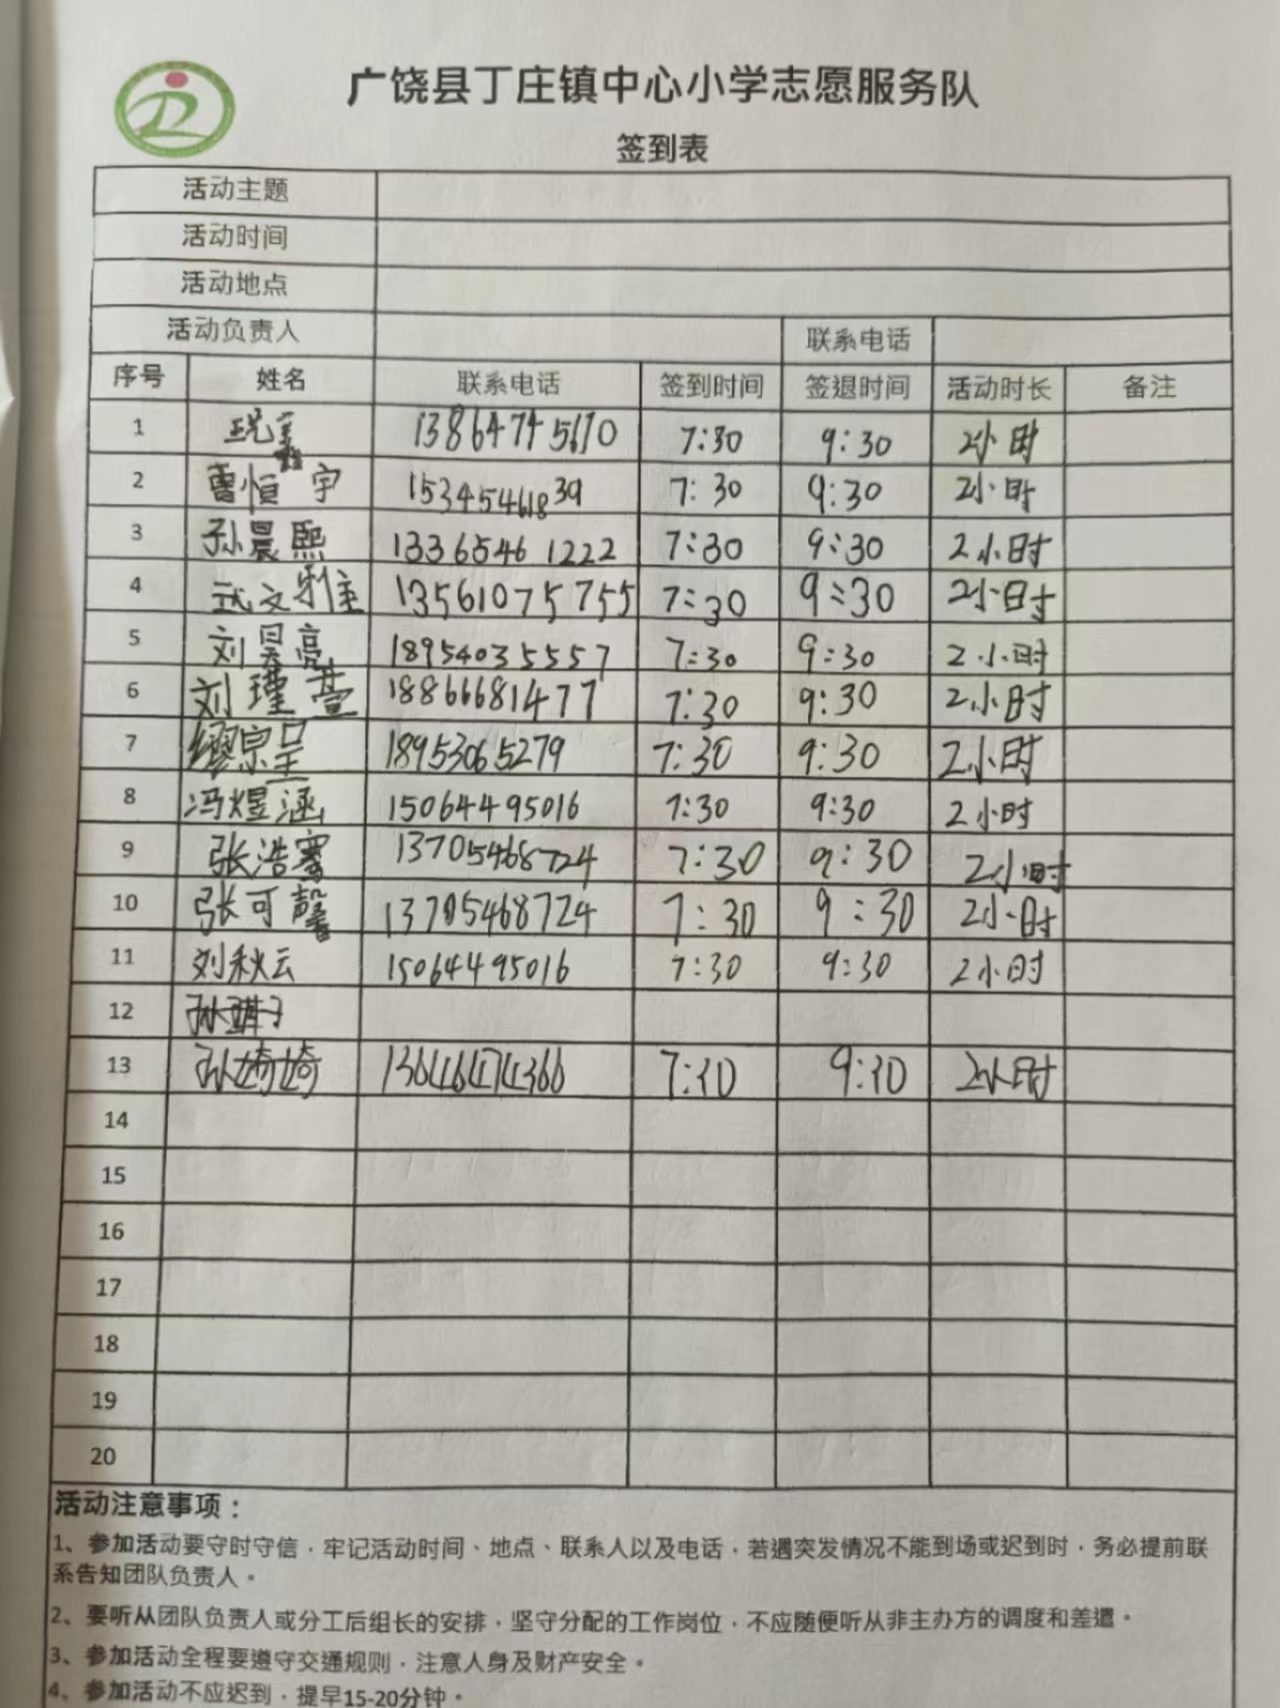 广饶县丁庄镇中心小学志愿服务队
签到表
活动主题
活动时间
活动地点
活动负责人 联系电话
序号 姓名 联系电话 签到时间 签退时间 活动时长 备注
1 13864745670 7:30 9:30 2小时
2 曹恒宇 15345461839 7:30 9:30 2小时
3 孙晨熙 13365461222 7:30 9:30 2小时
4 武文雅 13561075755 7:30 9:30 2小时
5 刘昊亮 18954035557 7:30 9:30 2小时
6 刘瑾萱 18866681477 7:30 9:30 2小时
7 缪宗呈 18953065279 7:30 9:30 2小时
8 冯煜涵 15064495016 7:30 9:30 2小时
9 张浩骞 13705468724 7:30 9:30 2小时
10 张可馨 13705468724 7:30 9:30 2小时
11 刘秋云 15064495016 7:30 9:30 2小时
12
13 孙婍婍 13646474366 7:30 9:30 2小时
14
15
16
17
18
19
20
活动注意事项：
1、参加活动要守时守信，牢记活动时间、地点、联系人以及电话，若遇突发情况不能到场或迟到时，务必提前联
系告知团队负责人。
2、要听从团队负责人或分工后组长的安排，坚守分配的工作岗位，不应随便听从非主办方的调度和差遣。
3、参加活动全程要遵守交通规则，注意人身及财产安全。
4、参加活动不应迟到，提早15-20分钟。